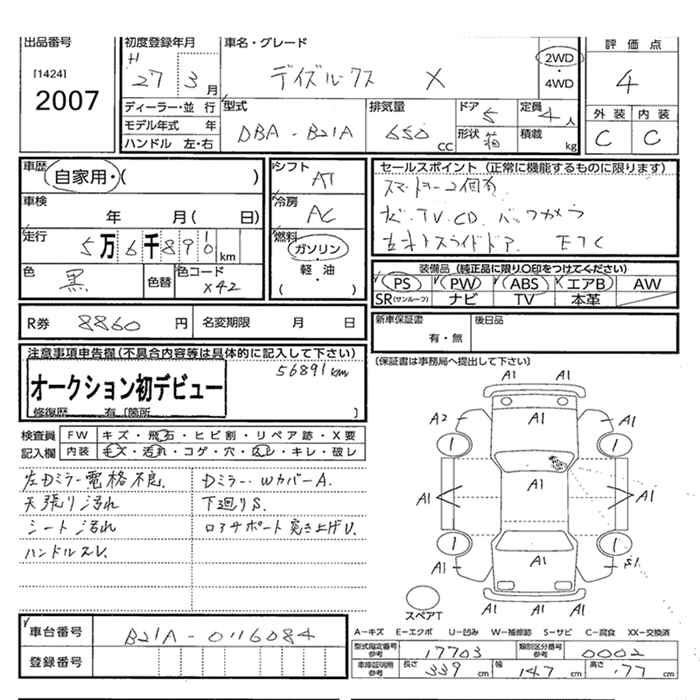 出品番号
[1424]
2007
初度登録年月
H 27 3月
ディーラー・並 行
モデル年式 年
ハンドル 左・右
車名・グレード
デイズルークス X
2WD
・
4WD
型式
DBA - B21A
排気量
650 CC
ドア 5
形状 箱
定員 4人
積載 kg
評価点
4
外装 内装
C C
車歴
自家用・( )
車検
年 月( 日)
走行
5万6千890 km
色
黒
色替
色コード
X42
シフト
AT
冷房
AC
燃料
ガソリン
・
軽・油
( )
セールスポイント (正常に機能するものに限ります)
スマートキー2個有
ナビ.TV.CD.バックカメラ
左オートスライドドア. ETC
装備品 (純正品に限り○印をつけてください)
PS PW ABS エアB AW
SR(サンルーフ) ナビ TV 本革
R券 8860 円 名変期限 月 日
新車保証書
有・無
後日品
[保証書は事務局へ提出して下さい]
注意事項申告欄(不具合内容等は具体的に記入して下さい)
56891km
オークション初デビュー
修復歴 有 [箇所 ]
検査員 FW キズ・飛石・ヒビ割・リペア跡・X要
記入欄 内装 モズ・汚れ・コゲ・穴・スレ・キレ・破レ
左Dミラー電格不良. Dミラー.WカバーA.
天張り汚れ 下廻りS.
シート汚れ ロアサポート突き上げU.
ハンドルスレ.
A1 A1
A2 A1 A1
1 1
A1
A1 A1
A1
1 1
A1 A1 S1
A1 A1
スペアT
A-キズ E-エクボ U-凹み W-補修跡 S-サビ C-腐食 XX-交換済
車台番号 B21A-0116084
登録番号
型式指定番号 参考 17703 類別区分番号 参考 0002
車庫証明用 参考 長さ 339 cm 幅 147 cm 高さ 177 cm